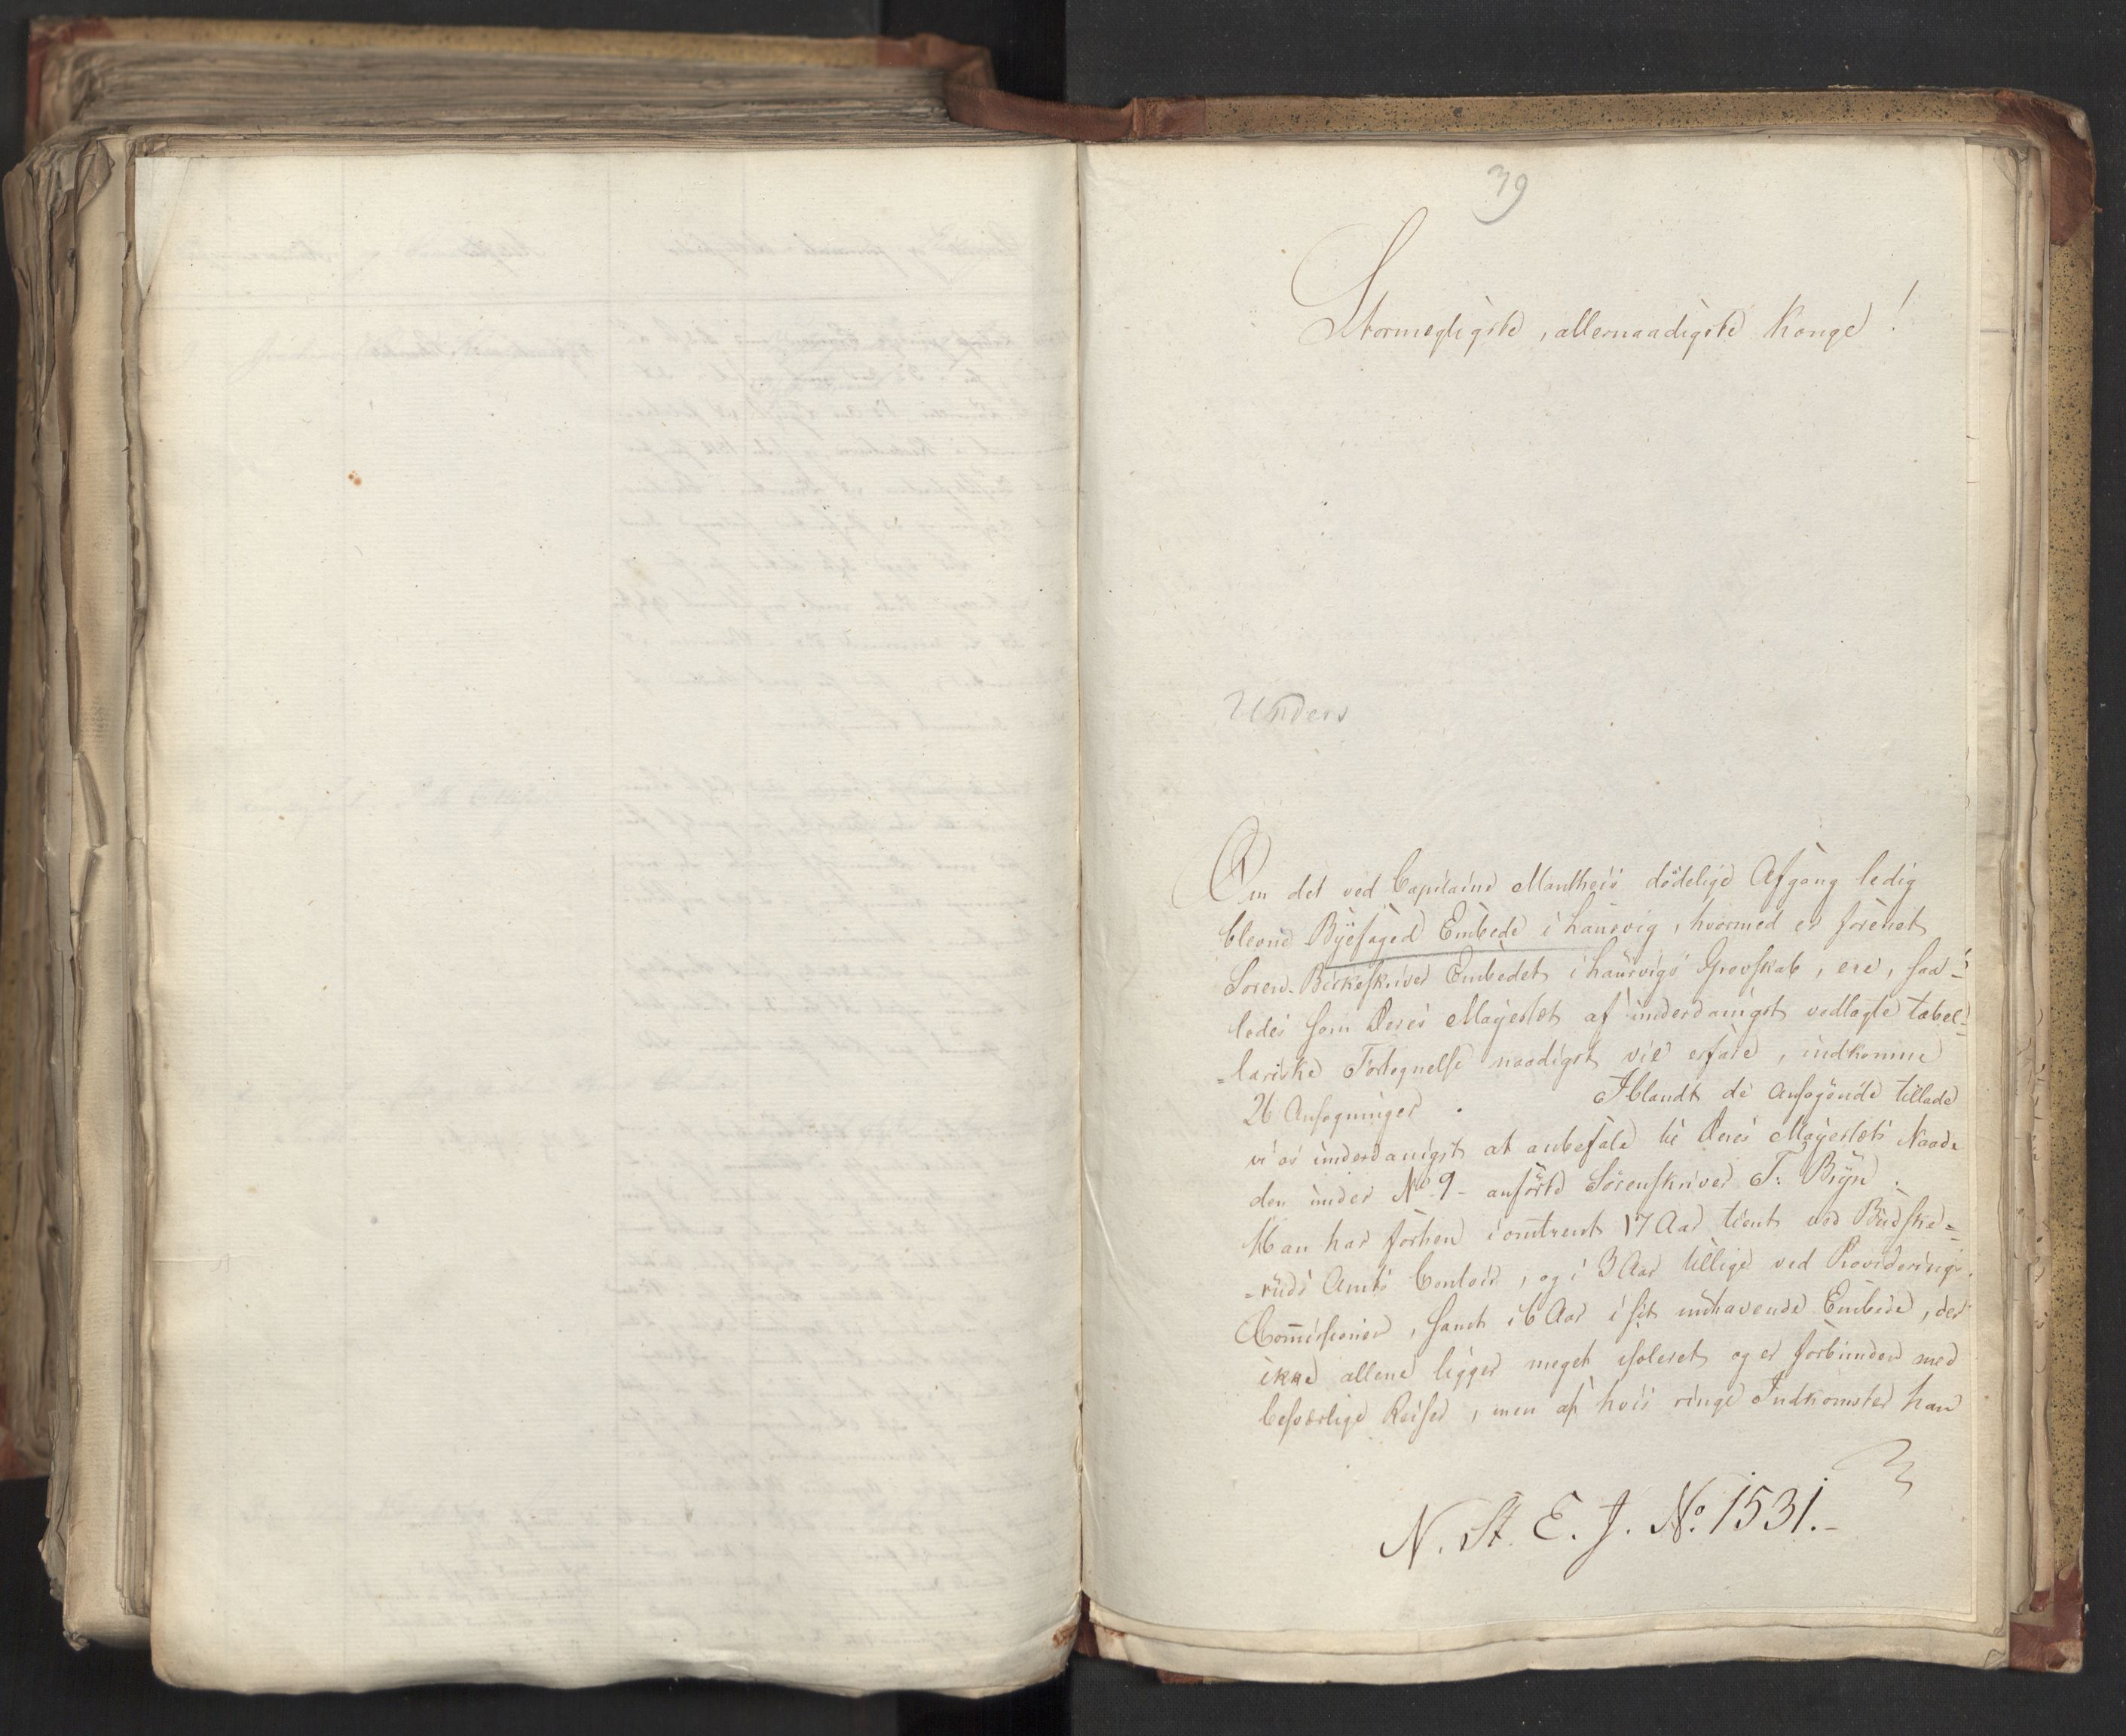 39
Stormegtigste, allernaadigste Konge!
Unders
Om det ved Capitaine Mantheis dødelige Afgang ledig
blevne Byefoged Embede i Laurvig, hvormed er forenet
Soren- Birkeskriver Embedet i Laurvigs Grevskab, ere, saa-
ledes som Deres Mayestæt af underdanigst vedlagte tabel-
-lariske Fortegnelse naadigst vil erfare, indkomne
26 Ansøgninger. Iblandt de Ansøgende tillade
vi os underdanigst at anbefale til Deres Mayestæts Naade
den under No 9- anførte Sorenskriver T. Bryn.
Han har forhen i omtrent 17 Aar tient ved Budske-
-ruds Amts Contoir, og i 3 Aar tillige ved Providerings
Commissionen, samt i 6 Aar i sit innhavende Embede, der
ikke allene ligger meget isoleret og er forbunden med
besværlige Reiser, men af hvis ringe Indkomster han
N. St. E. J. No. 1531.-